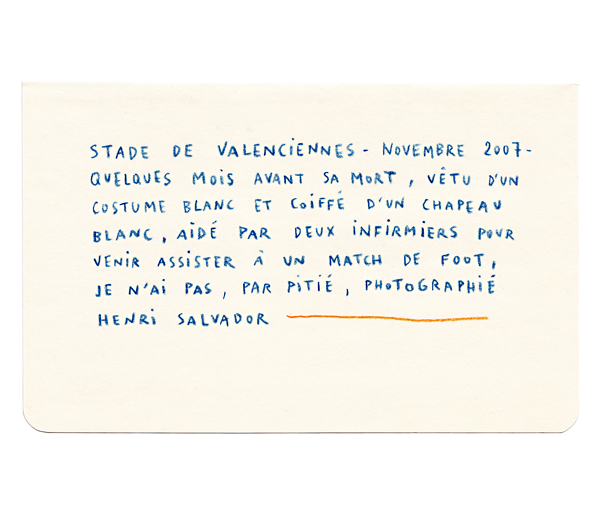 STADE DE VALENCIENNES - NOVEMBRE 2007 -
QUELQUES MOIS AVANT SA MORT, VÊTU D'UN
COSTUME BLANC ET COIFFÉ D'UN CHAPEAU
BLANC, AIDÉ PAR DEUX INFIRMIERS POUR
VENIR ASSISTER À UN MATCH DE FOOT,
JE N'AI PAS, PAR PITIÉ, PHOTOGRAPHIÉ
HENRI SALVADOR